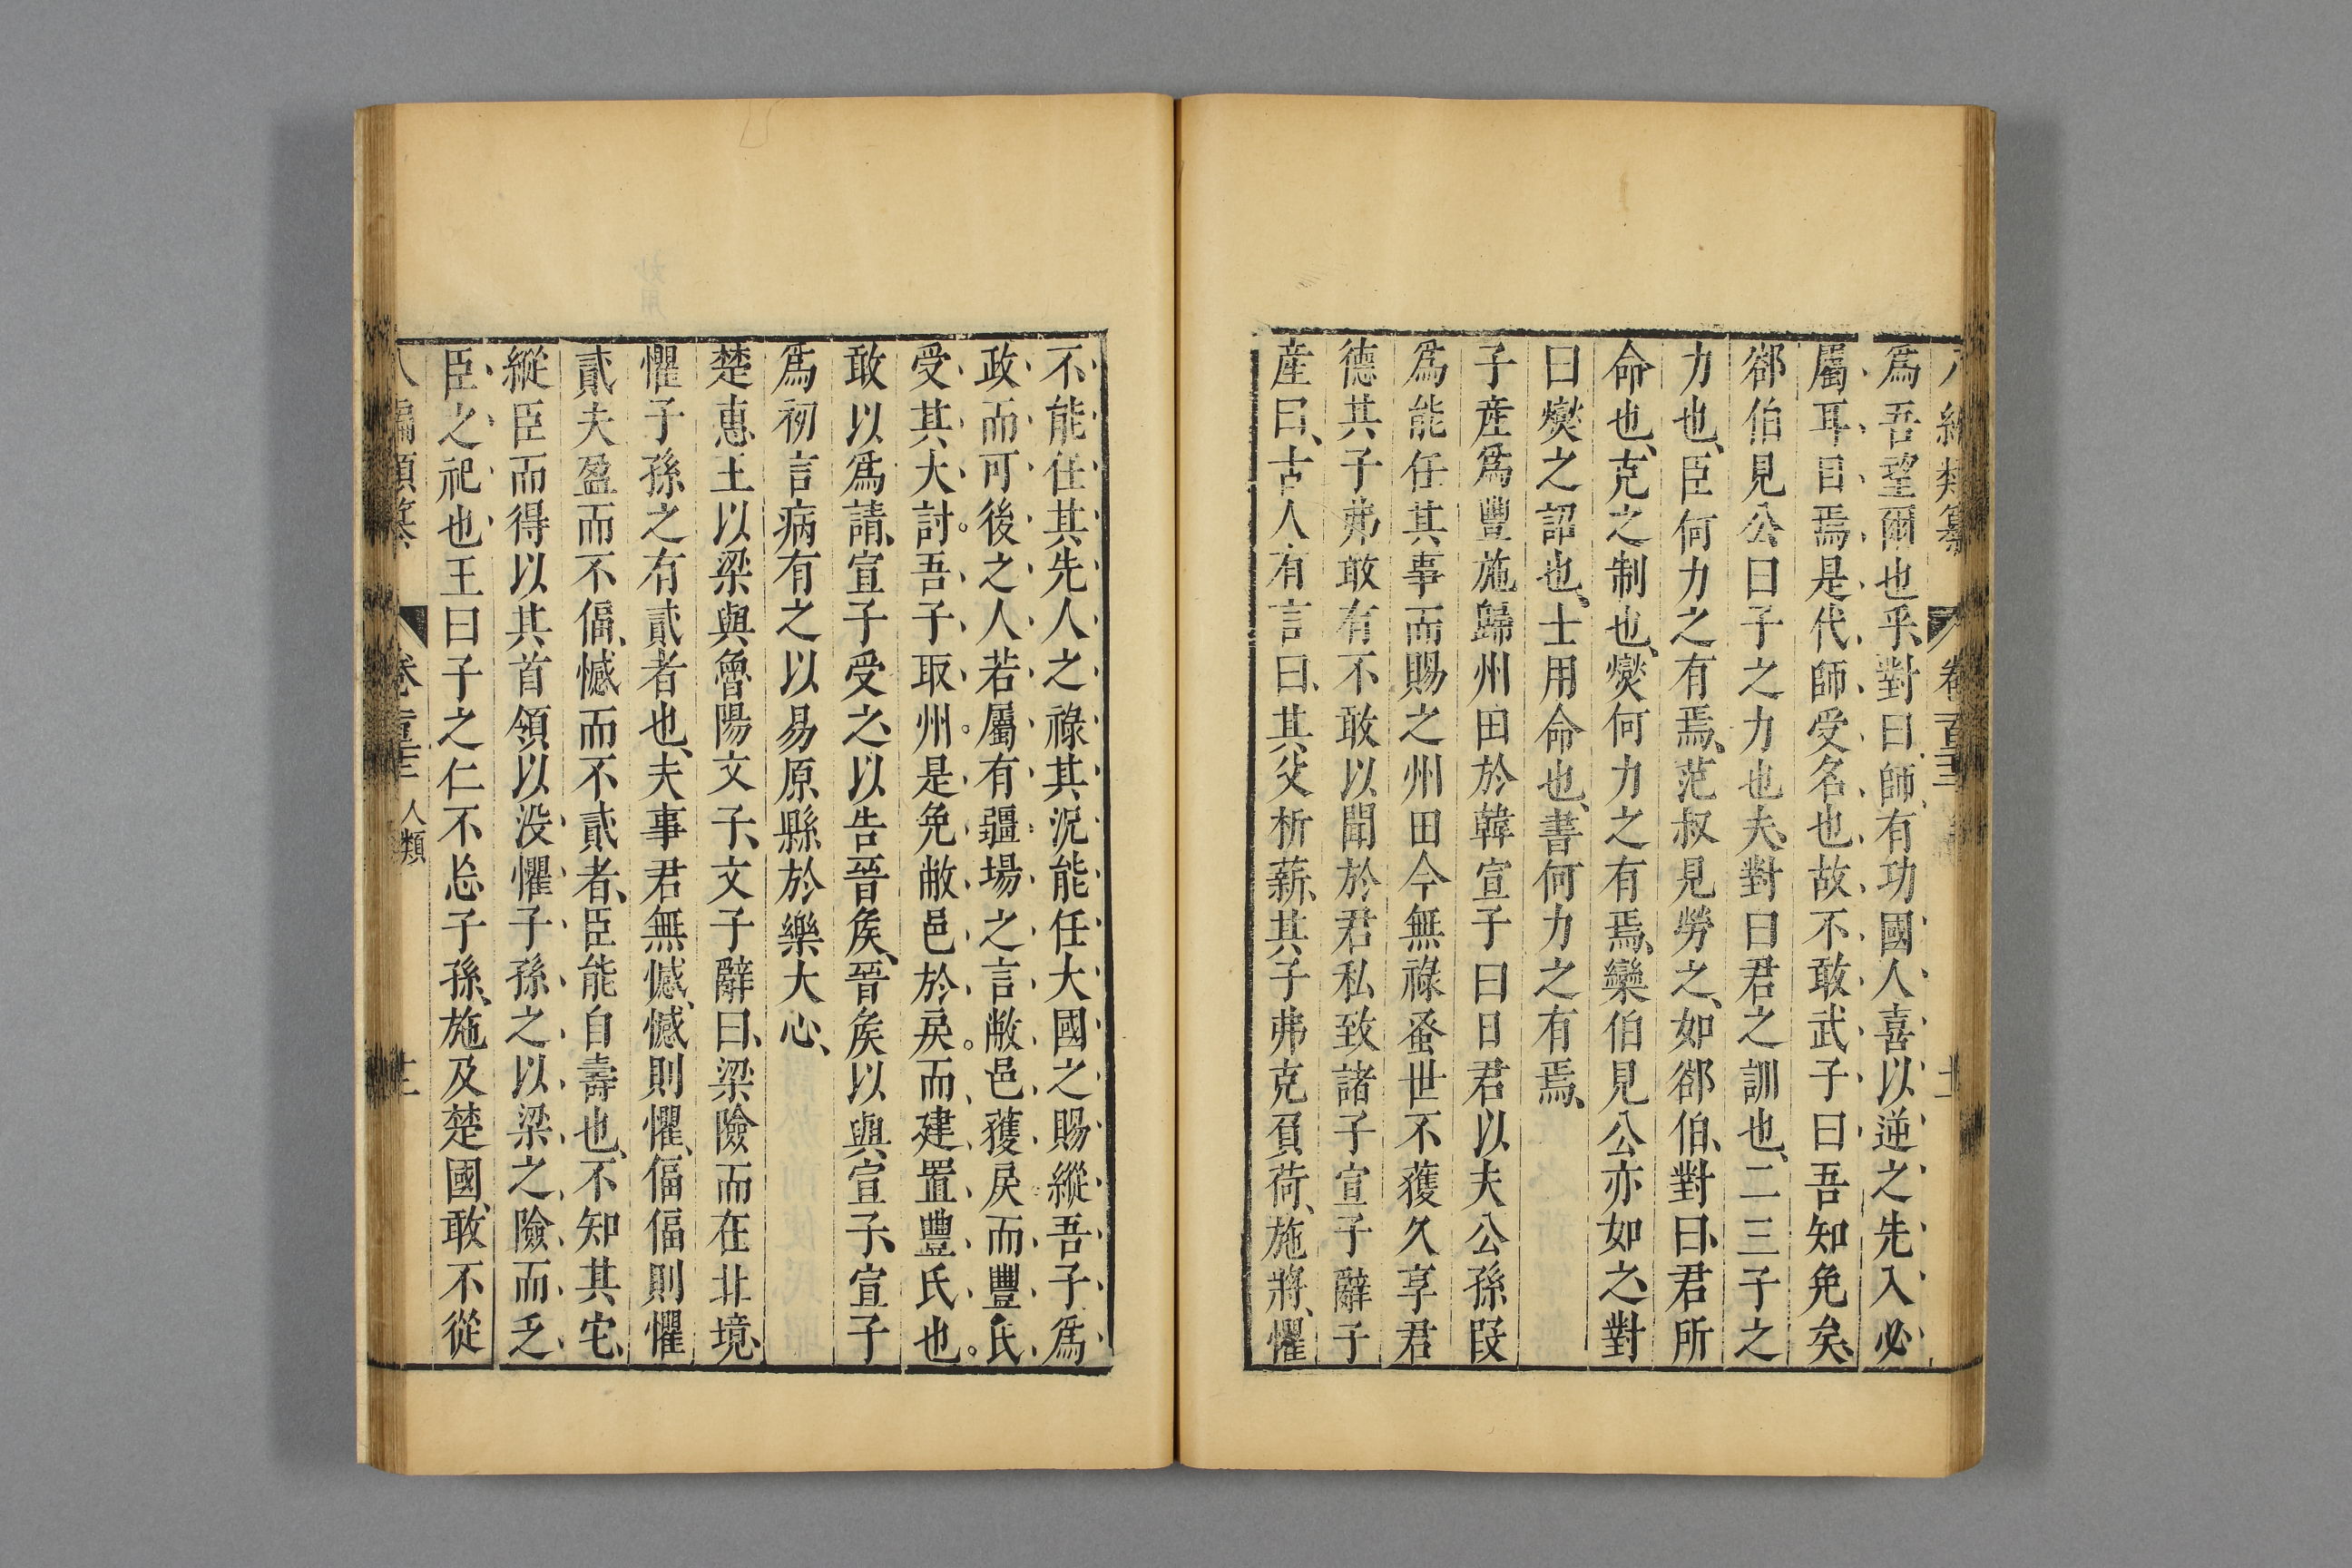 爲吾望爾也乎、對曰、師有功國人喜以逆之先入必
屬耳目焉是代師受名也故不敢武子曰吾知免矣、
郤伯見公曰子之力也夫、對曰君之訓也、二三子之
力也、臣何力之有焉、范叔見勞之、如郤伯、對曰、君所
命也、克之制也、爕何力之有焉、欒伯見公亦如之、對
曰爕之詔也、士用命也、書何力之有焉、
子產爲豐施歸州田於韓宣子曰日君以夫公孫段
爲能任其事而賜之州田今無祿蚤世不獲久享君
德其子弗敢有不敢以聞於君私致諸子宣子辭子
產曰、古人有言曰、其父析薪、其子弗克負荷、施將、懼
不能任其先人之祿其況能任大國之賜縱吾子爲
政而可後之人若屬有疆場之言敝邑獲戾而豐氏
受其大討。吾子取州。是免敝邑於戾。而建置豐氏也。
敢以爲請、宣子受之、以告晉矦、晉矦以與宣子、宣子
爲初言病有之以易原縣於樂大心、
楚惠王以梁與魯陽文子、文子辭曰、梁險而在北境、
懼子孫之有貳者也、夫事君無憾、憾則懼、偪偪則懼
貳夫盈而不偪、憾而不貳者、臣能自壽也、不知其宅、
縱臣而得以其首領以没懼子孫之以梁之險而乏
臣之祀也王曰子之仁不忘子孫、施及楚國、敢不從
人類